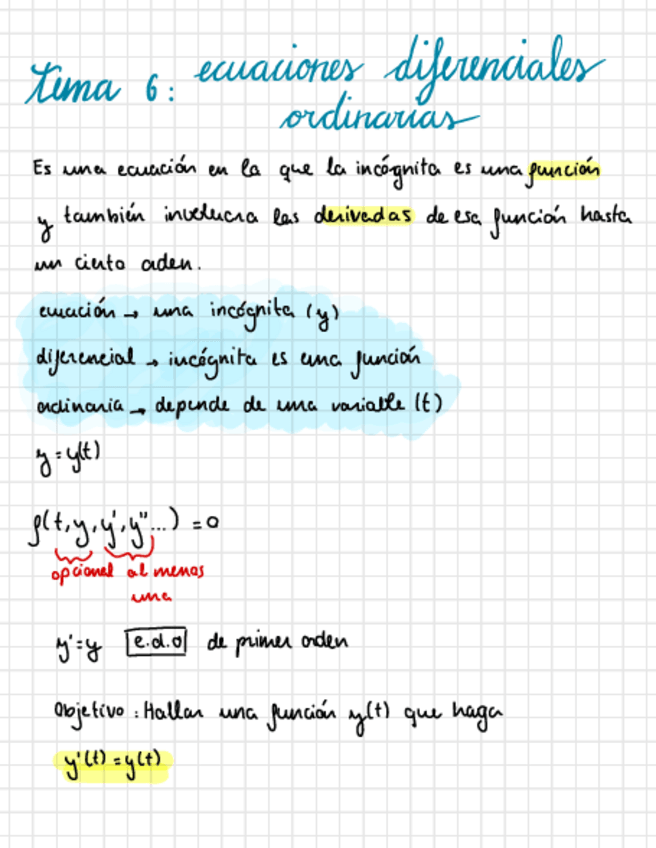 Tema 6: ecuaciones diferenciales
ordinarias
Es una ecuación en la que la incógnita es una función
y también involucra las derivadas de esa función hasta
un cierto orden.
ecuación → una incógnita (y)
diferencial → incógnita es una función
ordinaria → depende de una variable (t)
y = y(t)
f(t, y, y', y''...) = 0
opcional al menos
una
y' = y e.d.o de primer orden
Objetivo: Hallar una función y(t) que haga
y'(t) = y(t)